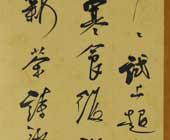 々試上超
寒食後酒
新茶詩酒